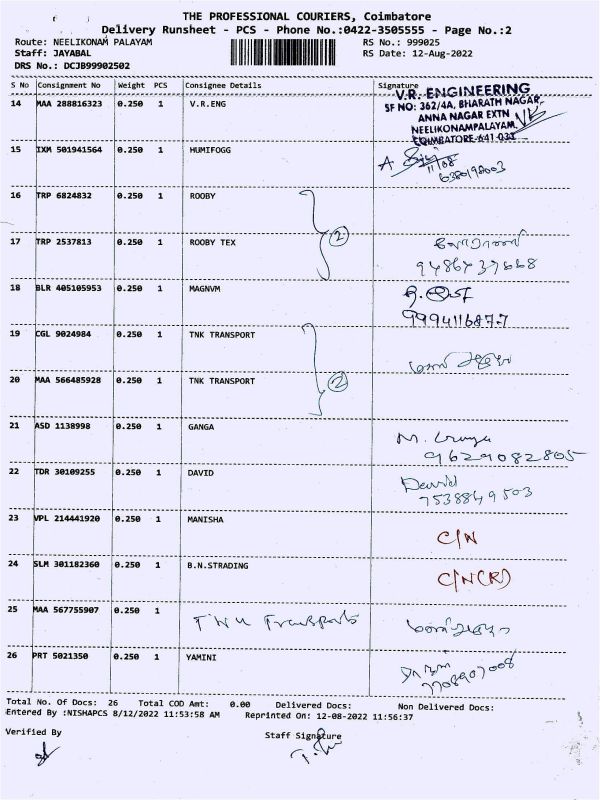 THE PROFESSIONAL COURIERS, Coimbatore
Delivery Runsheet - PCS - Phone No.:0422-3505555 - Page No.:2
Route: NEELIKONAM PALAYAM RS No.: 999025
Staff: JAYABAL RS Date: 12-Aug-2022
DRS No.: DCJB99902502
S No Consignment No Weight PCS Consignee Details Signature
14 MAA 288816323 0.250 1 V.R.ENG
V.R. ENGINEERING
SF NO: 362/4A, BHARATH NAGAR,
ANNA NAGAR EXTN
NEELIKONAMPALAYAM,
COIMBATORE-641 033
15 IXM 501941564 0.250 1 HUMIFOGG
A
11/08
6380198003
16 TRP 6824832 0.250 1 ROOBY
2
17 TRP 2537813 0.250 1 ROOBY TEX
9486737668
18 BLR 405105953 0.250 1 MAGNVM
9994116877
19 CGL 9024984 0.250 1 TNK TRANSPORT
2
20 MAA 566485928 0.250 1 TNK TRANSPORT
21 ASD 1138998 0.250 1 GANGA
M.
9629082805
22 TDR 30109255 0.250 1 DAVID David
7538849503
23 VPL 214441920 0.250 1 MANISHA C/N
24 SLM 301182360 0.250 1 B.N.STRADING C/N(R)
25 MAA 567755907 0.250 1 TNK Transports
26 PRT 5021350 0.250 1 YAMINI
7708907008
Total No. Of Docs: 26 Total COD Amt: 0.00 Delivered Docs: Non Delivered Docs:
Entered By :NISHAPCS 8/12/2022 11:53:58 AM Reprinted On: 12-08-2022 11:56:37
Verified By Staff Signature